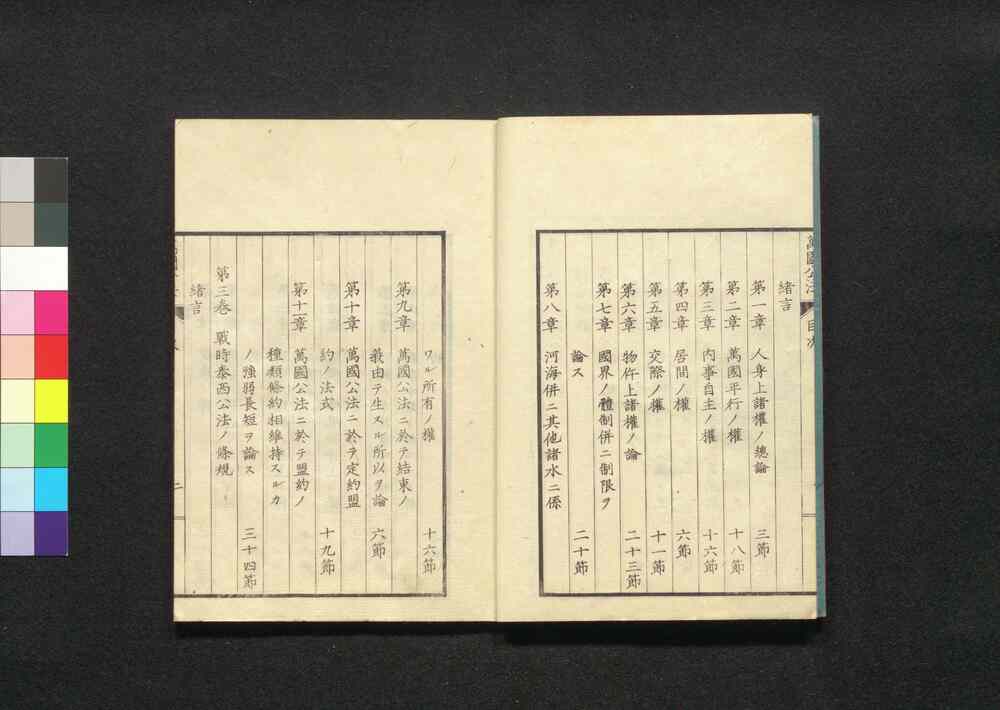 萬國公法
目次
緒言
第一章 人身上諸權ノ總論 三節
第二章 萬國平行ノ權 十八節
第三章 内事自主ノ權 十六節
第四章 居間ノ權 六節
第五章 交際ノ權 十一節
第六章 物件上諸權ノ論 二十三節
第七章 國界ノ體制併ニ制限ヲ
論ス 二十節
第八章 河海併ニ其他諸水ニ係
ワル所有ノ權 十六節
第九章 萬國公法ニ於テ結束ノ
義由テ生スル所以ヲ論 六節
第十章 萬國公法ニ於テ定約盟
約ノ法式 十九節
第十一章 萬國公法ニ於テ盟約ノ
種類條約相維持スルカ
ノ強弱長短ヲ論ス 三十四節
第三卷 戰時泰西公法ノ條規
緒言
二